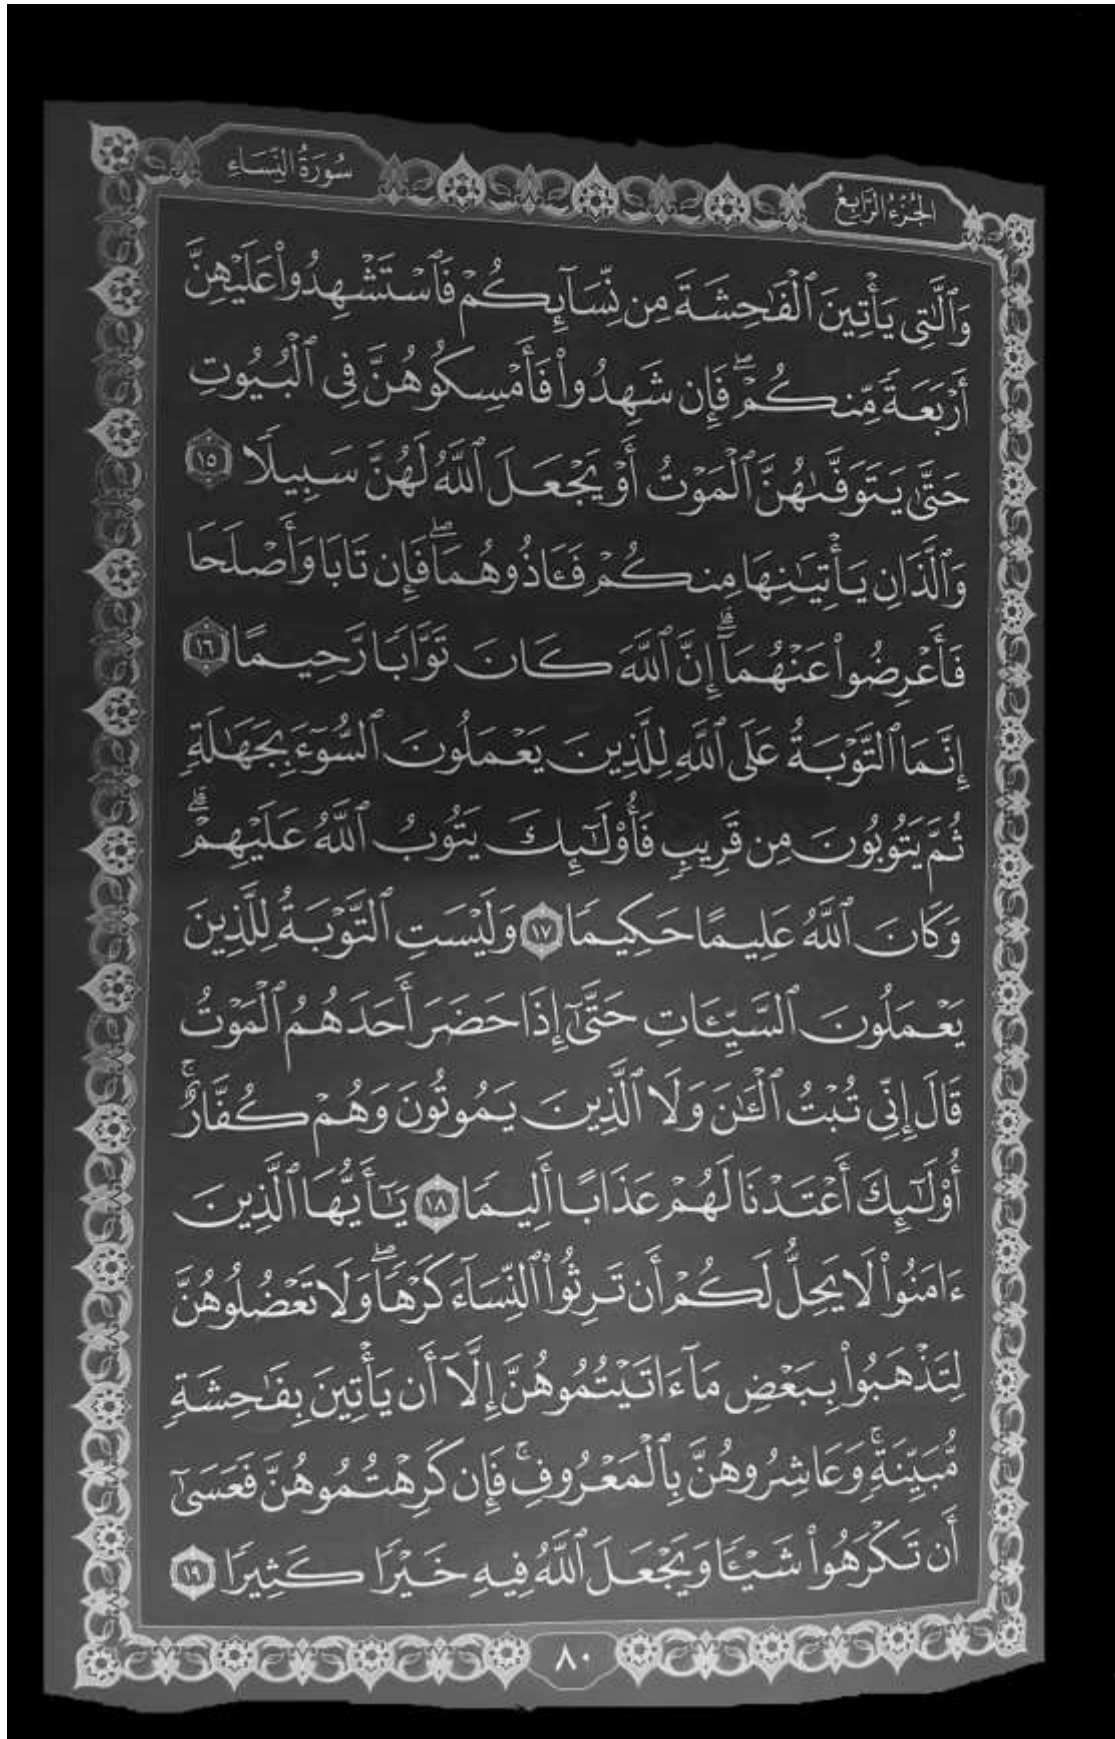 الجزء الرابع
سورة النساء
وَٱلَّٰتِي يَأۡتِينَ ٱلۡفَٰحِشَةَ مِن نِّسَآئِكُمۡ فَٱسۡتَشۡهِدُواْ عَلَيۡهِنَّ
أَرۡبَعَةٗ مِّنكُمۡۖ فَإِن شَهِدُواْ فَأَمۡسِكُوهُنَّ فِي ٱلۡبُيُوتِ
حَتَّىٰ يَتَوَفَّىٰهُنَّ ٱلۡمَوۡتُ أَوۡ يَجۡعَلَ ٱللَّهُ لَهُنَّ سَبِيلٗا ١٥
وَٱلَّذَانِ يَأۡتِيَٰنِهَا مِنكُمۡ فَـَٔاذُوهُمَاۖ فَإِن تَابَا وَأَصۡلَحَا
فَأَعۡرِضُواْ عَنۡهُمَآۗ إِنَّ ٱللَّهَ كَانَ تَوَّابٗا رَّحِيمًا ١٦
إِنَّمَا ٱلتَّوۡبَةُ عَلَى ٱللَّهِ لِلَّذِينَ يَعۡمَلُونَ ٱلسُّوٓءَ بِجَهَٰلَةٖ
ثُمَّ يَتُوبُونَ مِن قَرِيبٖ فَأُوْلَٰٓئِكَ يَتُوبُ ٱللَّهُ عَلَيۡهِمۡۗ
وَكَانَ ٱللَّهُ عَلِيمًا حَكِيمٗا ١٧ وَلَيۡسَتِ ٱلتَّوۡبَةُ لِلَّذِينَ
يَعۡمَلُونَ ٱلسَّيِّـَٔاتِ حَتَّىٰٓ إِذَا حَضَرَ أَحَدَهُمُ ٱلۡمَوۡتُ
قَالَ إِنِّي تُبۡتُ ٱلۡـَٰٔنَ وَلَا ٱلَّذِينَ يَمُوتُونَ وَهُمۡ كُفَّارٌۚ
أُوْلَٰٓئِكَ أَعۡتَدۡنَا لَهُمۡ عَذَابًا أَلِيمٗا ١٨ يَٰٓأَيُّهَا ٱلَّذِينَ
ءَامَنُواْ لَا يَحِلُّ لَكُمۡ أَن تَرِثُواْ ٱلنِّسَآءَ كَرۡهٗاۖ وَلَا تَعۡضُلُوهُنَّ
لِتَذۡهَبُواْ بِبَعۡضِ مَآ ءَاتَيۡتُمُوهُنَّ إِلَّآ أَن يَأۡتِينَ بِفَٰحِشَةٖ
مُّبَيِّنَةٖۚ وَعَاشِرُوهُنَّ بِٱلۡمَعۡرُوفِۚ فَإِن كَرِهۡتُمُوهُنَّ فَعَسَىٰٓ
أَن تَكۡرَهُواْ شَيۡـٔٗا وَيَجۡعَلَ ٱللَّهُ فِيهِ خَيۡرٗا كَثِيرٗا ١٩
٨٠